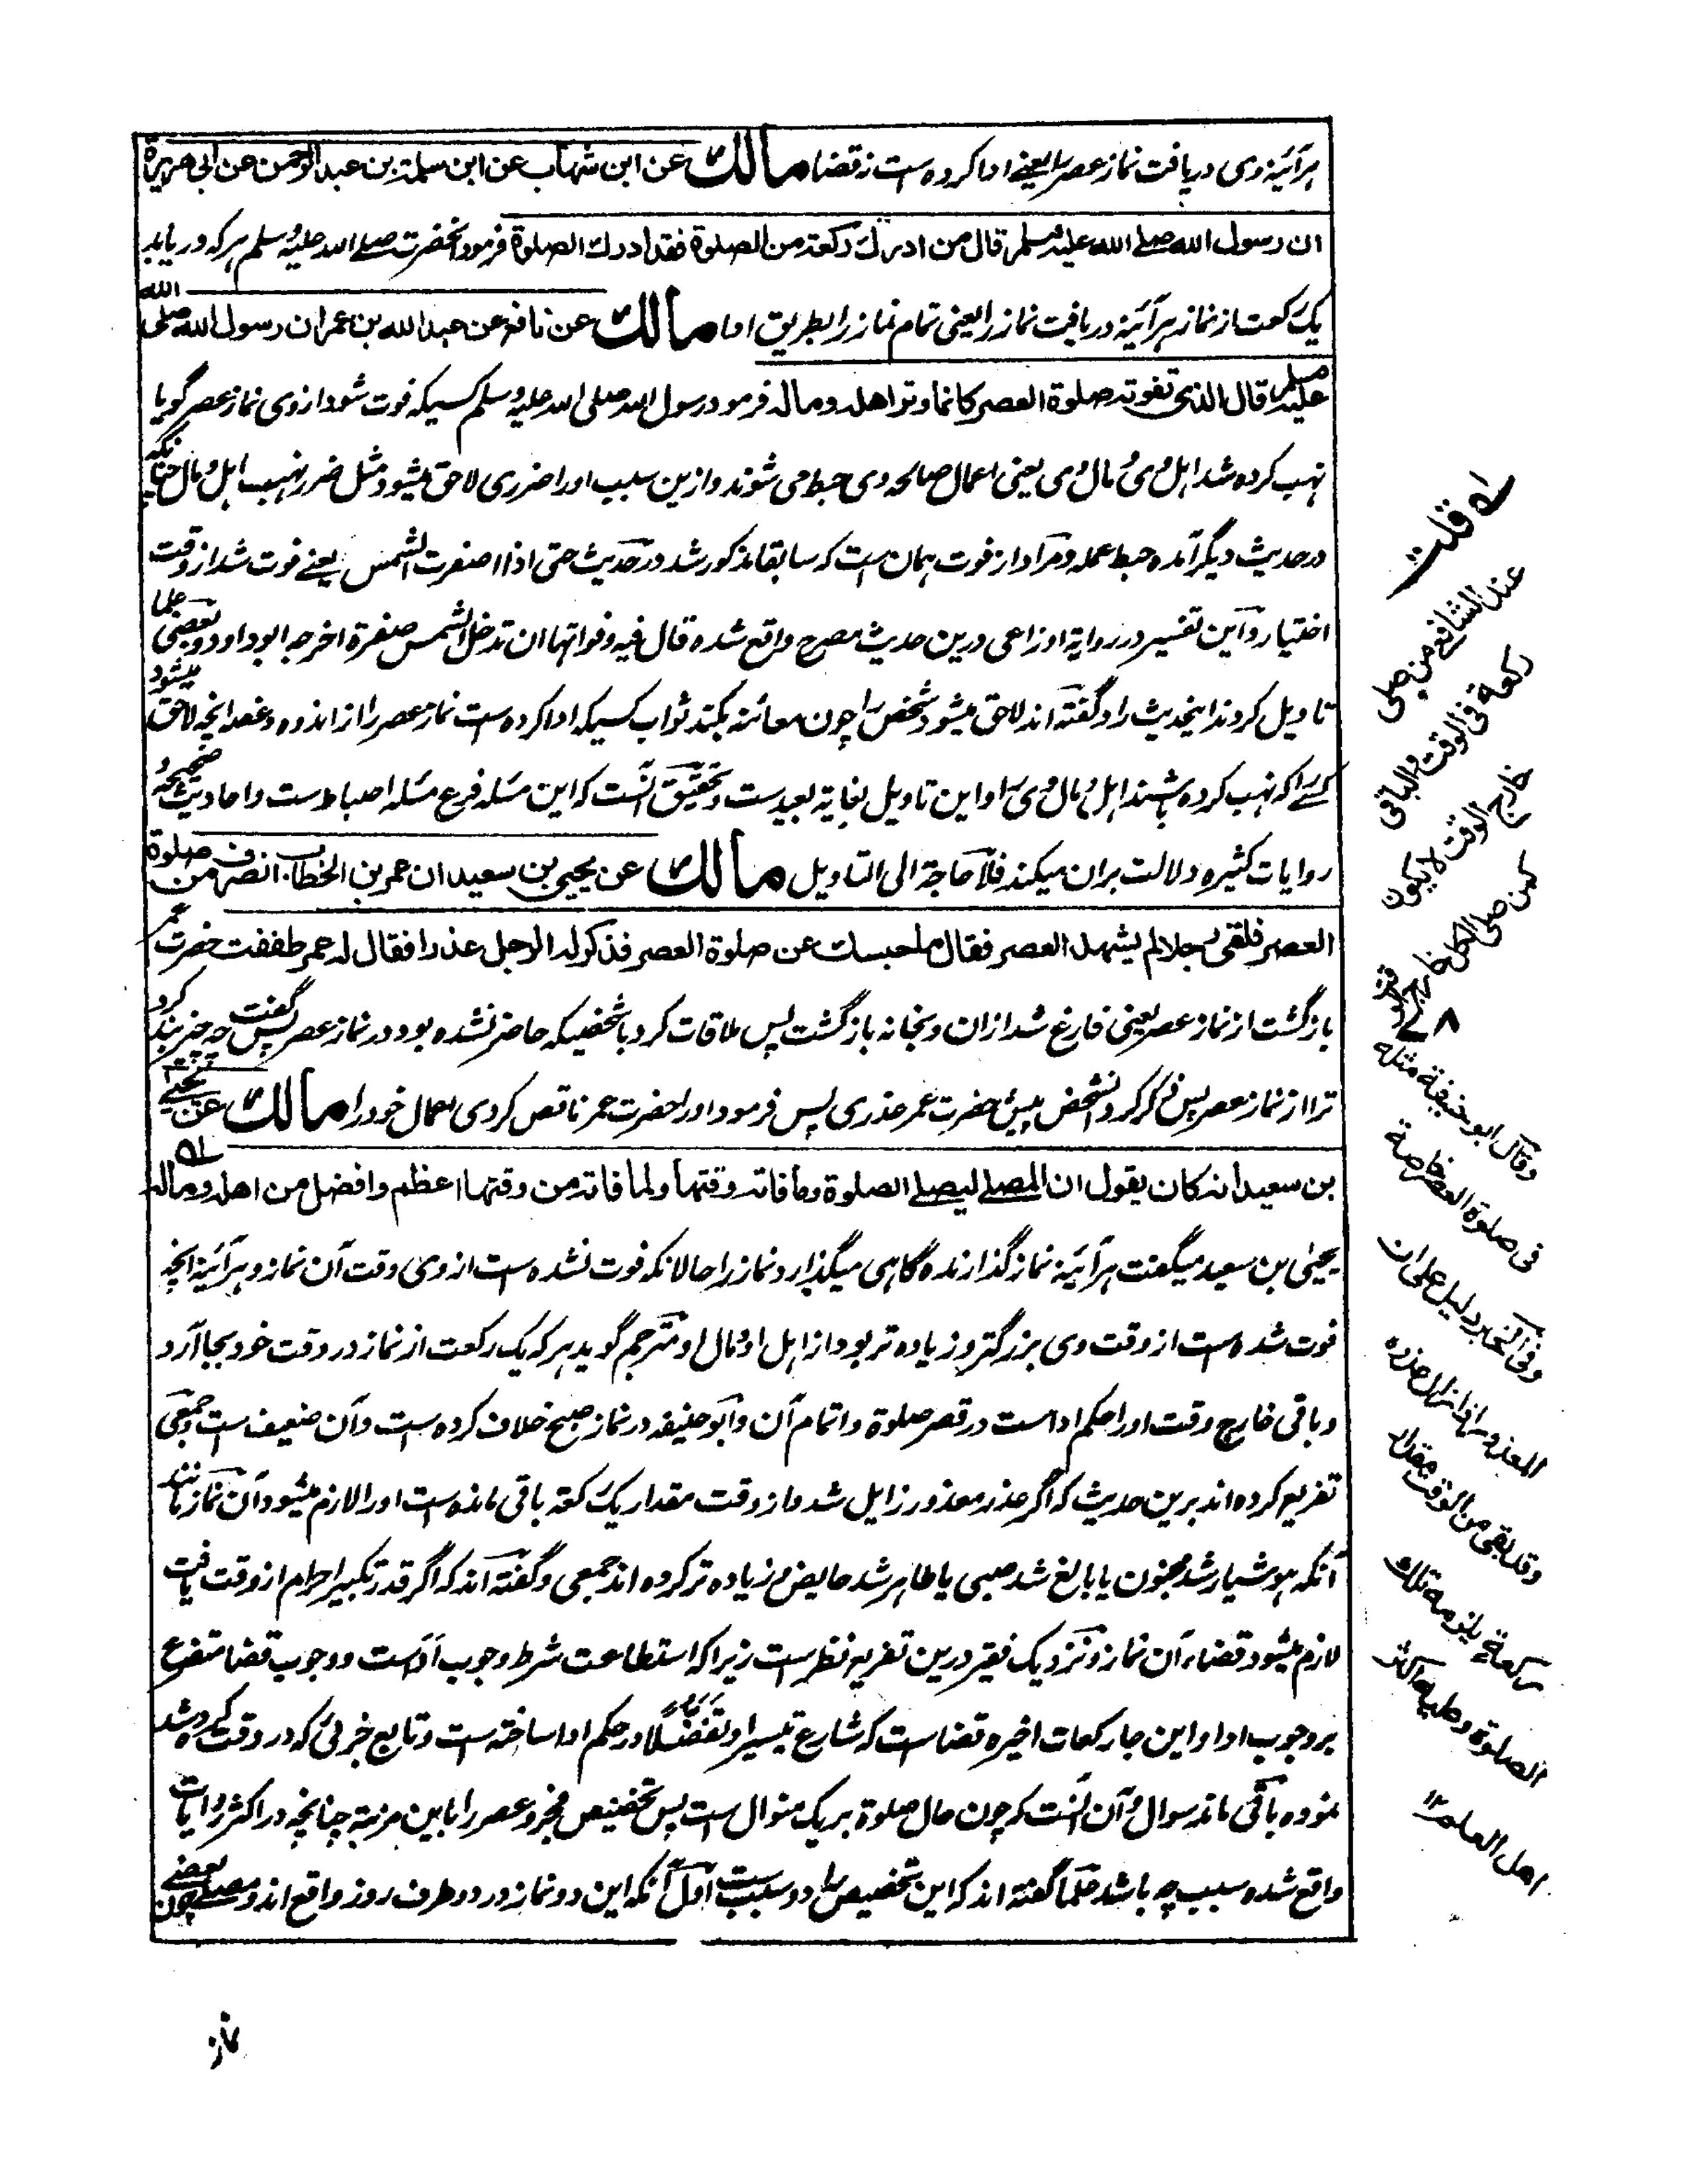 هرآئینه وی دریافت نماز عصر را یعنے ادا کرده است نه قضا مالك عن ابن شهاب عن ابن سلمة بن عبد الرحمن عن ابی هریرة
ان رسول الله صلے الله علیه وسلم قال من ادرك ركعة من الصلوة فقد ادرك الصلوة فرمود آنحضرت صلے الله علیه وسلم هر که دریابد
یک رکعت از نماز هرآئینه دریافت نماز را یعنی تمام نماز را بطریق ادا مالك عن نافع عن عبد الله بن عمر ان رسول الله صلی الله
علیه وسلم قال الذی تفوته صلوة العصر كانما وتر اهله وماله فرمود رسول الله صلی الله علیه وسلم کسیکه فوت شود از وی نماز عصر گویا
نهب کرده شد اهل وی و مال وی یعنی اعمال صالحه وی حبط می شوند و ازین سبب او را ضرری لاحق میشود مثل ضرر نهب اهل و مال چنانکه
در حدیث دیگر آمده حبط عمله و مراد از فوت همان است که سابقا مذکور شد در حدیث حتی اذا اصفرت الشمس یعنے فوت شد از وقت
اختیار و این تفسیر در روایة اوزاعی درین حدیث مصرح واقع شده قال فیه وفواتها ان تدخل الشمس صفرة اخرجه ابوداود و بعضی علما
تاویل کردند اینحدیث را و گفته اند لاحق میشود شخص را چون معائنه بکند ثواب کسیکه ادا کرده است نماز عصر را از اندوه و غصه آنچه لاحق میشود
کسے را که نهب کرده باشند اهل و مال وی را و این تاویل بغایة بعید ست و تحقیق آنست که این مسئله فرع مسئله احباط ست و احادیث صحیحه و
روایات کثیره دلالت بران میکند فلا حاجة الی التاویل مالك عن یحیی بن سعید ان عمر بن الخطاب انصرف من صلوة
العصر فلقی رجلا لم یشهد العصر فقال ما حبسك عن صلوة العصر فذكر له الرجل عذرا فقال له عمر طففت حضرت عمر
بازگشت از نماز عصر یعنی فارغ شد ازان و بخانه بازگشت پس ملاقات کرد با شخصیکه حاضر نشده بود در نماز عصر پس گفت چه چیز بند کرد
ترا از نماز عصر پس ذکر کرد آنشخص پیش حضرت عمر عذری پس فرمود او را حضرت عمر ناقص کردی اعمال خود را مالك عن یحیے
بن سعید انه كان یقول ان المصلے لیصلے الصلوة وما فاته وقتها ولما فاته من وقتها اعظم وافضل من اهله وماله
یحیی بن سعید میگفت هرآئینه نماز گذارنده گاهی میگذارد نماز را حالانکه فوت نشده است از وی وقت آن نماز و هرآئینه آنچه
فوت شده است از وقت وی بزرگتر و زیاده تر بود از اهل او و مال او مترجم گوید هر که یک رکعت از نماز در وقت خود بجا آرد
و باقی خارج وقت او را حکم ادا ست در قصر صلوة و اتمام آن و ابو حنیفه در نماز صبح خلاف کرده است و آن ضعیف است و جمعی
تفریع کرده اند برین حدیث که اگر عذر معذور زایل شد و از وقت مقدار یک رکعة باقی مانده است او را لازم میشود آن نماز مانند
آنکه هوشیار شد مجنون یا بالغ شد صبی یا طاهر شد حایض و زیاده تر کرده اند جمعی و گفته اند که اگر قدر تکبیر احرام از وقت یافت
لازم میشود قضاء آن نماز و نزدیک فقیر درین تفریع نظر ست زیرا که استطاعت شرط وجوب ادا ست و وجوب قضا متفرع
بر وجوب ادا و این جا رکعات اخیره قضا ست که شارع تیسیرا و تفضلا در حکم ادا ساخته است و تابع جزئی که در وقت کرده شد
نموده باقی ماند سوال و آن آنست که چون حال صلوة بر یک منوال ست پس تخصیص فجر و عصر را باین مزیة چنانچه در اکثر روایات
واقع شده سبب چه باشد علما گفته اند که این تخصیص را دو سبب است اول آنکه این دو نماز در دو طرف روز واقع اند و مصلے چون بعضے
قلت
عند الشافعی من صلی
ركعة فی الوقت والباقی
خارج الوقت لا یكون
كمن صلی الكل خارج الوقت
وقال ابو حنیفة مثله
فی صلوة العصر خاصة
وفی الخبر دلیل علی ان
المعذور اذا زال عذره
وقد بقی من الوقت مقدار
ركعة یلزمه تلك
الصلوة وعلیه اكثر
اهل العلم ۱۲